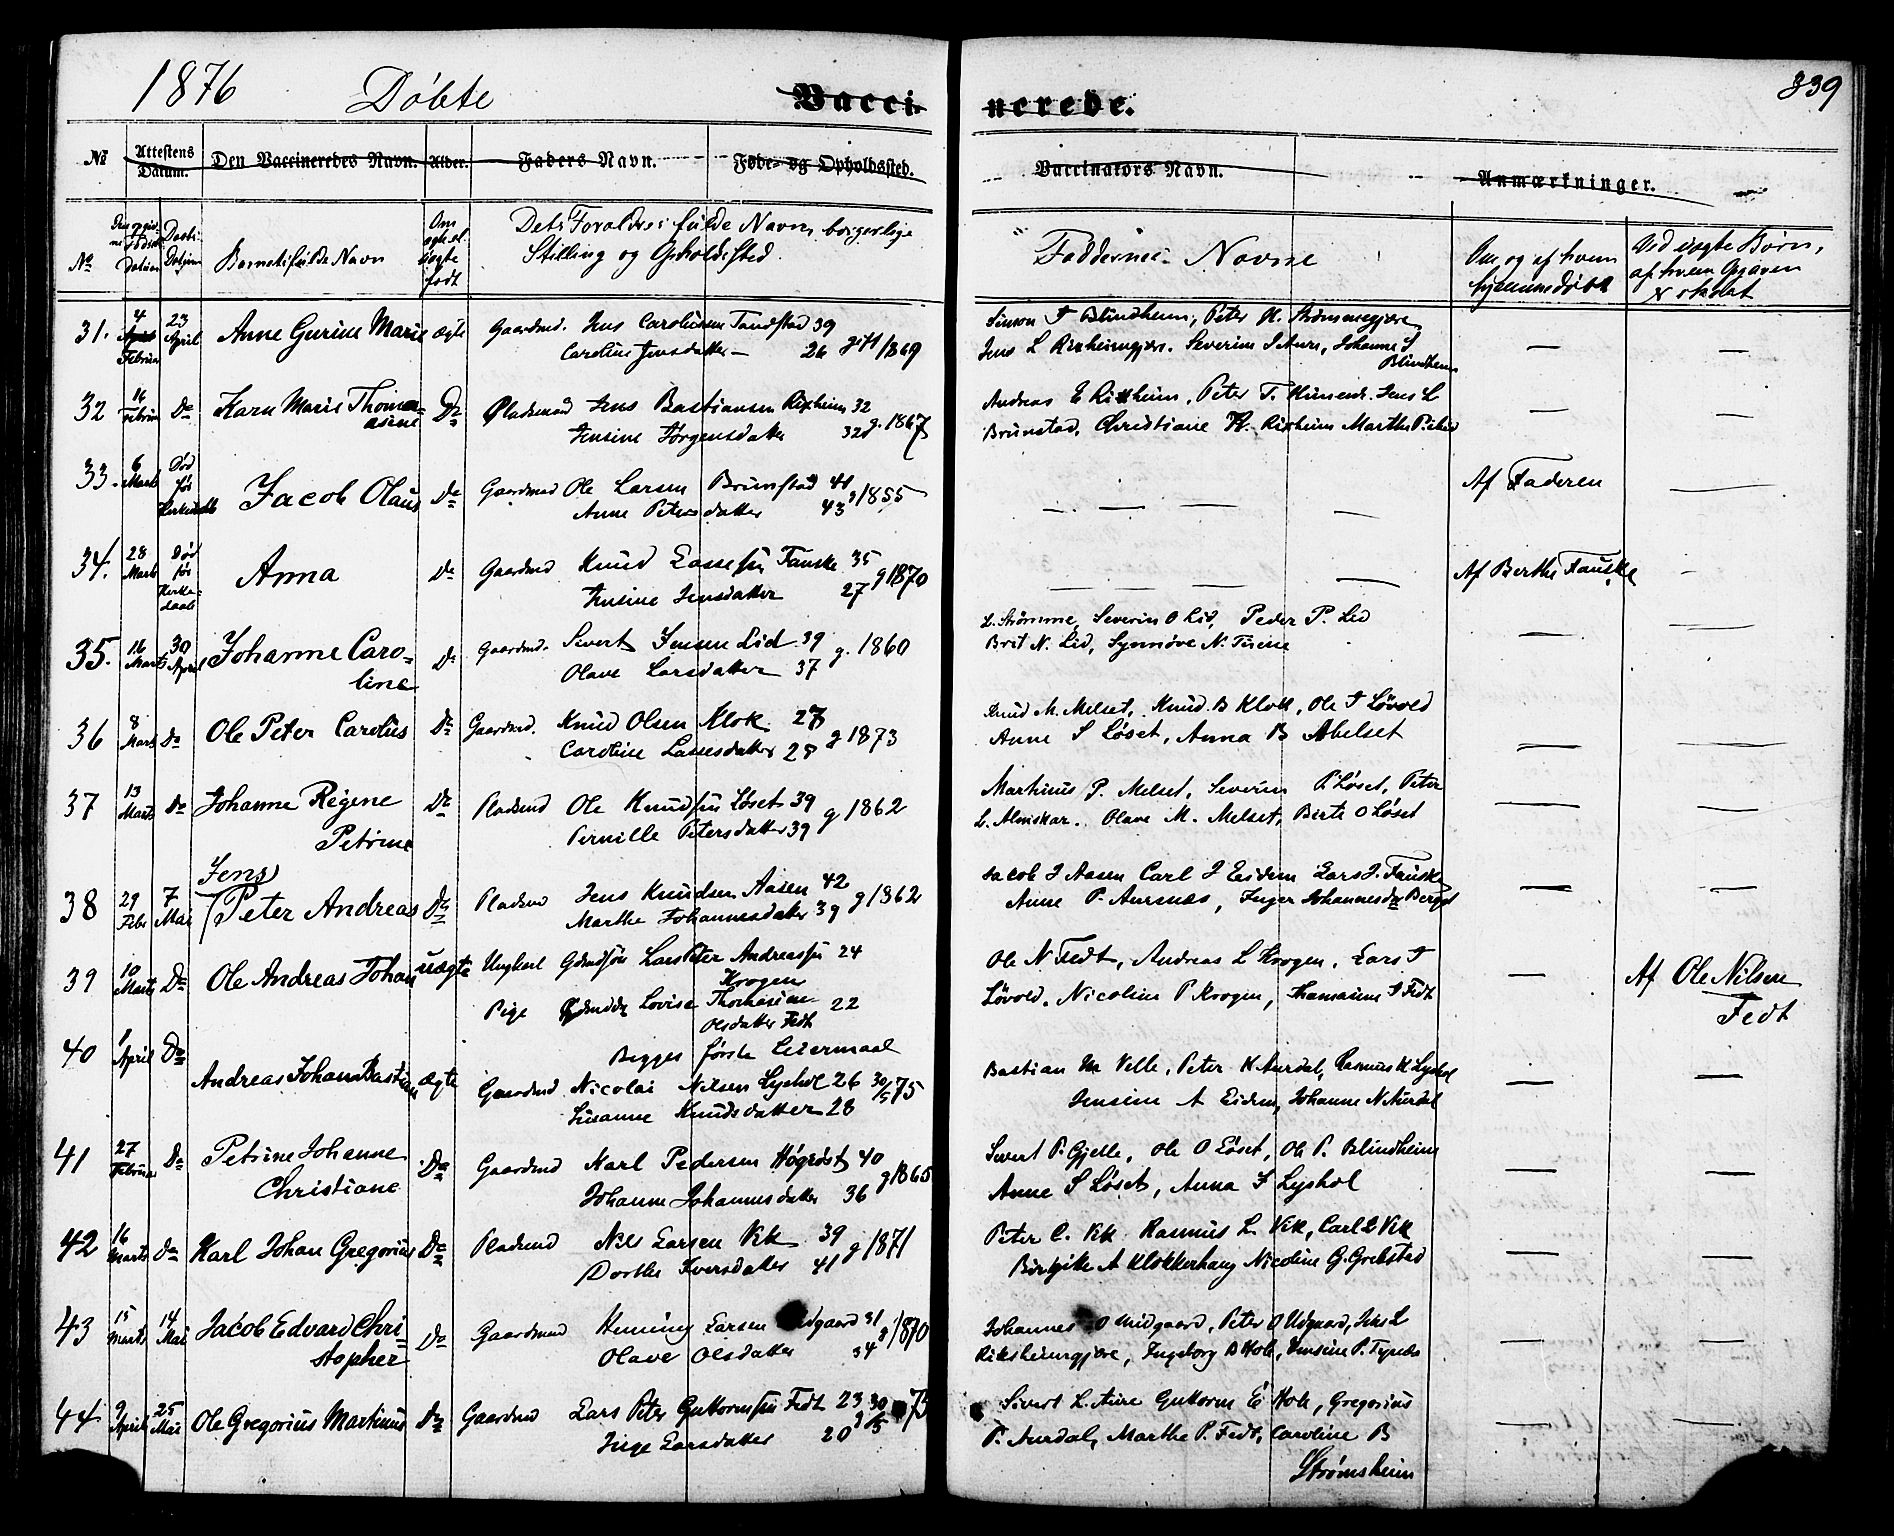 1876 Døbte Vacci- nerede. 339
No Attestens Datum. Den Vaccineredes Navn. Alder. Faders Navn. Føde- og Opholdssted. Vaccinators Navn. Anmærkninger.
No Barnets fulde Navn Om ægte el. uægte født Dets Forældres fulde Navn borgerlige
Stilling og Opholdssted
Faddernes Navne
Om og af hvem hjemmedøbt
Ved uægte Børn, af hvem Opgaven er skedt
31. 4 April Februar 23 April Anne Gurine Marie ægte Gaardmd. Jens Carolussen Tandstad 39
Caroline Jensdatter 26 gift 1869
Simon J Blindheim, Peter H. Strømmegjære
Jens L Rixheimgjær. Severine J Aure, Johanne S
Blindheim
32 16 Februar Do Karn Marie Thomasine Do Pladsmand Jens Bastiansen Rixheim 32
Jensine Jørgensdatter 32 g. 1867
Andreas E Rixheim, Peter T. Jens L
Brunstad, Christiane Rixheim Marthe P.
33. 6 Marts Død før Jacob Olaus Do Gaardmd Ole Larsen Brunstad 41
Anne Petersdatter 43 g 1855
Af Faderen
34. 28 Marts Død før Anna Do Gaardmd Knud Lassesen Fauske 35
Jensine Jensdatter 27 g 1870
Af Berthe Fauske
35. 16 Marts 30 April Johanne Caro-
line Do Gaardmd. Sivert Jensen Lid 39
Olave Larsdatter 37 g. 1860
L. Strømme, Severin O Lid, Peder P. Lid
Brit N. Lid, Synnøve N.
36 8 Marts Do Ole Peter Carolus Do Gaardmd. Knud Olsen Klok 27
Caroline Lassesdatter 28 g 1873
Knud M. Melset, Knud B Klok, Ole J Løvold
Anne S Løset, Anna B Abelset
37 13 Marts Do Johanne Regene
Petrine Do Pladsmd Ole Knudsen Løset 39
Pernille Petersdatter 39 g 1862
Martinus P. Melset, Severin P Løset, Peter
L. Almskar. Olave M. Melset, Birte O Løset
38 29 Febr 7 Mai Jens
Peter Andreas Do Pladsmd Jens Knudsen Aasen 42
Marthe Johannesdatter 39 g 1862
Jacob J Aasen Carl J Eidem Lars J. Fauske
Anne P. Aursnæs, Inger Johannesdr Berget
39 10 Marts Do Ole Andreas Johan uægte Ungkarl Lars Peter Andreassen 24
Krogen
Pige Lovise Thomasine 22
Olsdatter Fedt
Begges første Leiermaal
Ole N Fedt, Andreas L Krogen, Lars J
Løvold, Nicoline P Krogen, Thomasine J Fedt
Af Ole Nilsen
Fedt
40 1 April Do Andreas Johan Bastian ægte Gaardmd Nicolai Nilsen Lyshol 26 30/5 75
Susanne Knudsdatter 28
Bastian M Velle, Peter K Aurdal, Rasmus K Lyshol
Jensine A Eidem, Johanne N Aurdal
41 27 Februar Do Petrine Johanne
Christiane Do Gaardmd Karl Pedersen Høgrøst 40
Johanne Johannesdatter 36 g 1865
Sivert P. Gjelle, Ole O Løset, Ole P. Blindheim
Anne S Løset, Anna J Lyshol
42 16 Marts Do Karl Johan Gregorius Do Pladsmd Nils Larsen Vik 39
Dorthe Iversdatter 41 g 1871
Peter C. Vik Rasmus L. Vik, Carl L Vik
Birgitte A Klokkerhaug Nicoline G. Grebstad
43 15 Marts 14 Mai Jacob Edvard Chri-
stopher Do Gaardmand Henning Larsen Midgaard 31
Olave Olsdatter 34 g 1870
Johannes O Midgaard, Peter O Udgaard, Jens L
Riksheimgjære, Ingeborg B Hole, Jensine P. Tynæs
44 9 April 25 Mai Ole Gregorius Martinus Do Gaardmd Lars Peter Guttormsen Fedt 23
Inge Larsdatter 20 g 30/5 75
Sivert L. Aure Guttorm E Hole, Gregorius
P. Aurdal, Marthe P. Fedt, Caroline B
Strømsheim